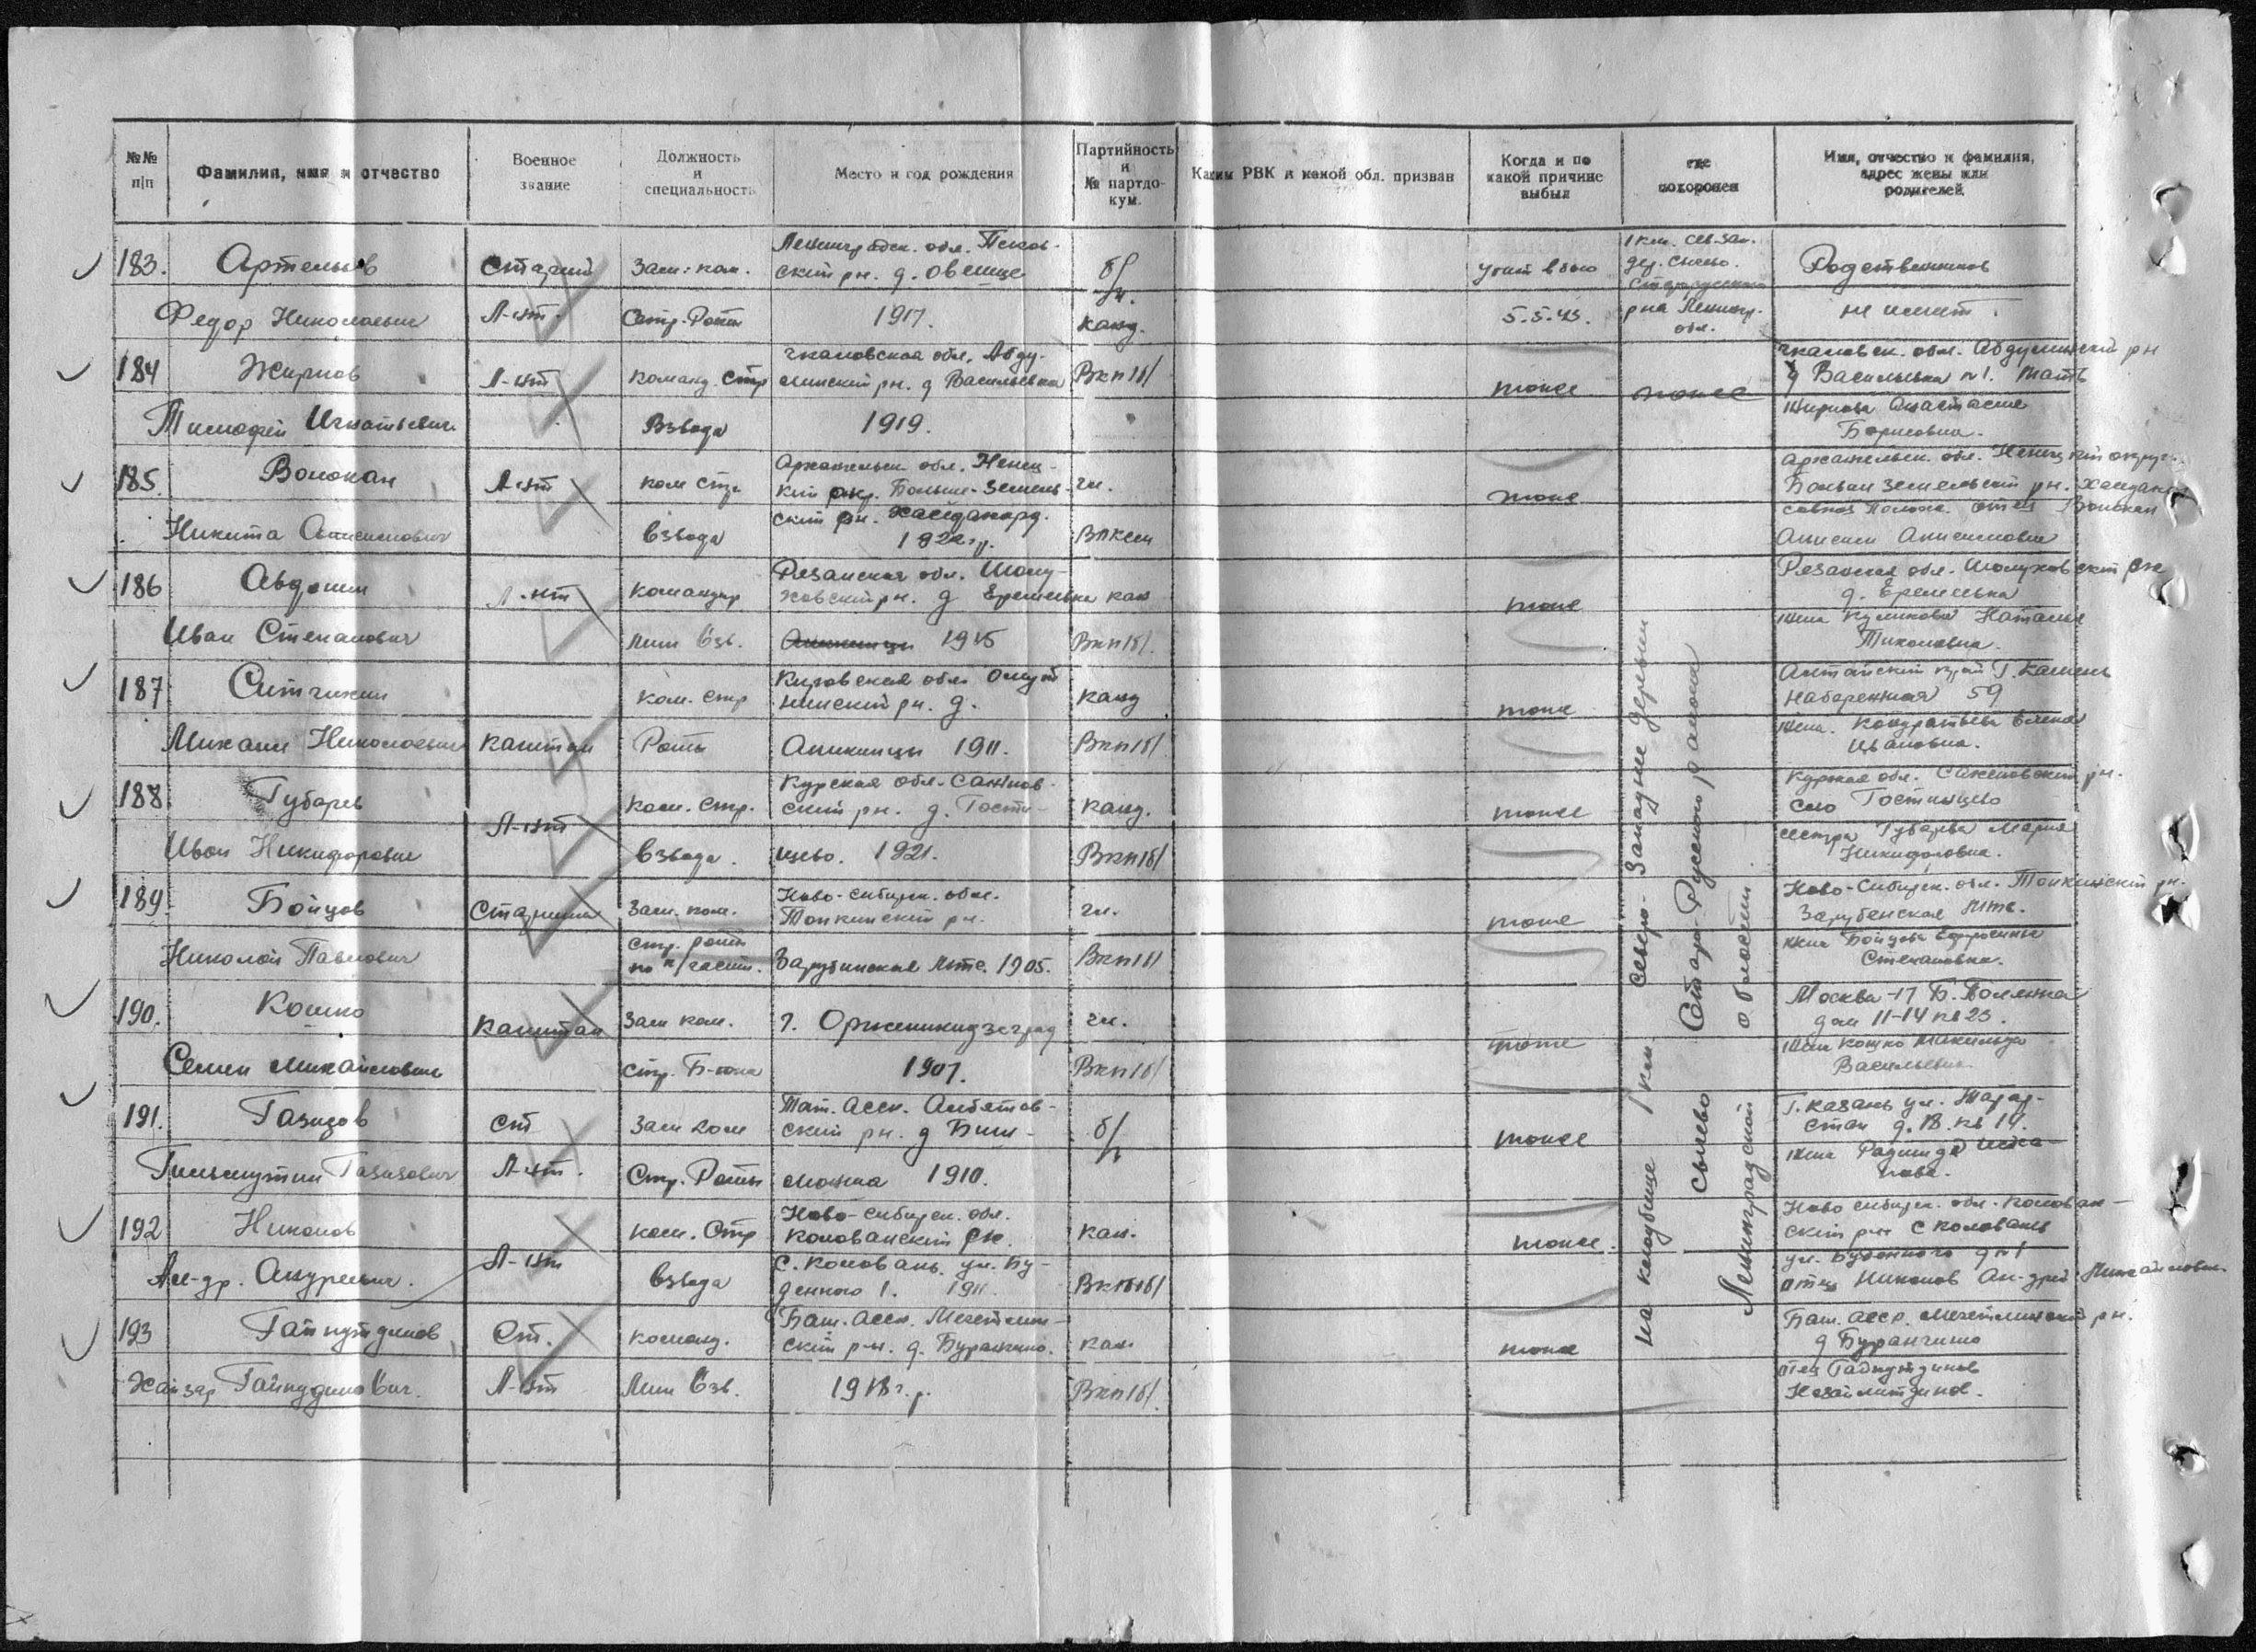 №№ п|п
Фамилия, имя и отчество
Военное звание
Должность и специальность
Место и год рождения
Партийность и № партдокум.
Каким РВК и какой обл. призван
Когда и по какой причине выбыл
где похоронен
Имя, отчество и фамилия, адрес жены или родителей
183. Артемьев
Федор Николаевич
Старший
Л-нт.
Зам. ком.
Стр. Роты
Ленинградск. обл. Псков-
ский рн. д. Овсище
1917.
б/
канд.
убит в бою
5.5.43.
1 км. сев. зап.
дер. Сычево.
Старорусского
р на Ленингр.
обл.
Родственников
не имеет.
184 Жирнов
Тимофей Игнатьевич
Л-нт
Команд. Стр
Взвода
Чкаловская обл. Абду-
линский рн. д Васильевка
1919.
Вкп/б/
тоже
тоже
Чкаловск. обл. Абдулинский рн
д Васильевка n 1. Мать
Жирнова Анастасия
Борисовна.
185.
Никита
Л-нт
ком стр
взвода
Архангельск обл. Ненец-
кий окр. Больше-Земель-
ский рн.
1922 г.р.
чл.
Влксм
тоже
Архангельск. обл. Ненецкий округ
рн.
отец
186 Авдонин
Иван Степанович
Л-нт
Командир
Мин Взв.
Рязанская обл. Шелу-
ховский рн. д Еремеевка
1915
кан
Вкп/б/.
тоже
Рязанская обл. Шелуховский рн
д. Еремеевка
жена Куликова Наталья
Тихоновна.
187 Ситчихин
Михаил Николаевич
Капитан
Ком. Стр
Роты
Кировская обл. Омут
нинский рн. д.
Аникинцы 1911.
канд
Вкп/б/
тоже
Алтайский край Г. Камень
Набережная 59
жена. Кондратьева Елена
Ивановна.
188 Губарев
Иван Никифорович
Л-нт
Ком. Стр.
взвода.
Курская обл. Сажнов-
ский рн. д. Гости-
щево. 1921.
канд.
Вкп/б/
тоже
Курская обл. рн.
село Гостищево
сестра Губарева Мария
Никифоровна.
189. Бойцов
Николай Павлович
Старшина
Зам. ком.
стр. роты
по п/части.
Ново-Сибирск. обл.
Топкинский рн.
Зарубинская Мтс. 1905.
чл.
Вкп/б/
тоже
Ново-Сибирск. обл. Топкинский рн.
Зарубенская Мтс.
жена Бойцова Ефросинья
Степановна.
190. Кошко
Семен Михайлович
Капитан
Зам ком.
Стр. Б-она
г. Орженикидзеград
1907.
чл.
Вкп/б/
тоже
Москва-17 Б. Полянка
дом 11-14 кв 23.
жена Кошко
Васильевна
191. Газизов
Газизович
Ст
Л-нт.
Зам ком
Стр. Роты
Тат. Асср.
ский рн. д
1910.
б/
тоже
Г. Казань ул.
д. 18. кв 14.
жена
192 Николов
Ал-др. Андреевич.
Л-нт
ком. Стр
взвода
Ново-Сибирск. обл.
Колованский рн.
С. Коловань. ул. Бу-
денного 1. 1911.
кан.
Вкп/б/
тоже.
Ново Сибирск. обл. Колован-
ский рн С Коловань
ул. Буденного д n 1
отец Николов Ан-дрей Михайлович.
193 Гайнутдинов
Гайнудинович.
Ст.
Л-нт
Команд.
Мин Взв.
Баш. Асср. Мечетлин-
ский р-н. д. Буранчино.
1918 г.р.
кан
Вкп/б/.
тоже
Баш. Асср. Мечетлинский рн.
д Буранчино
отец Гайнутдинов
на кладбище 1 км Северо-Западнее деревни
Сычево Старо-Русского района
Ленинградской области